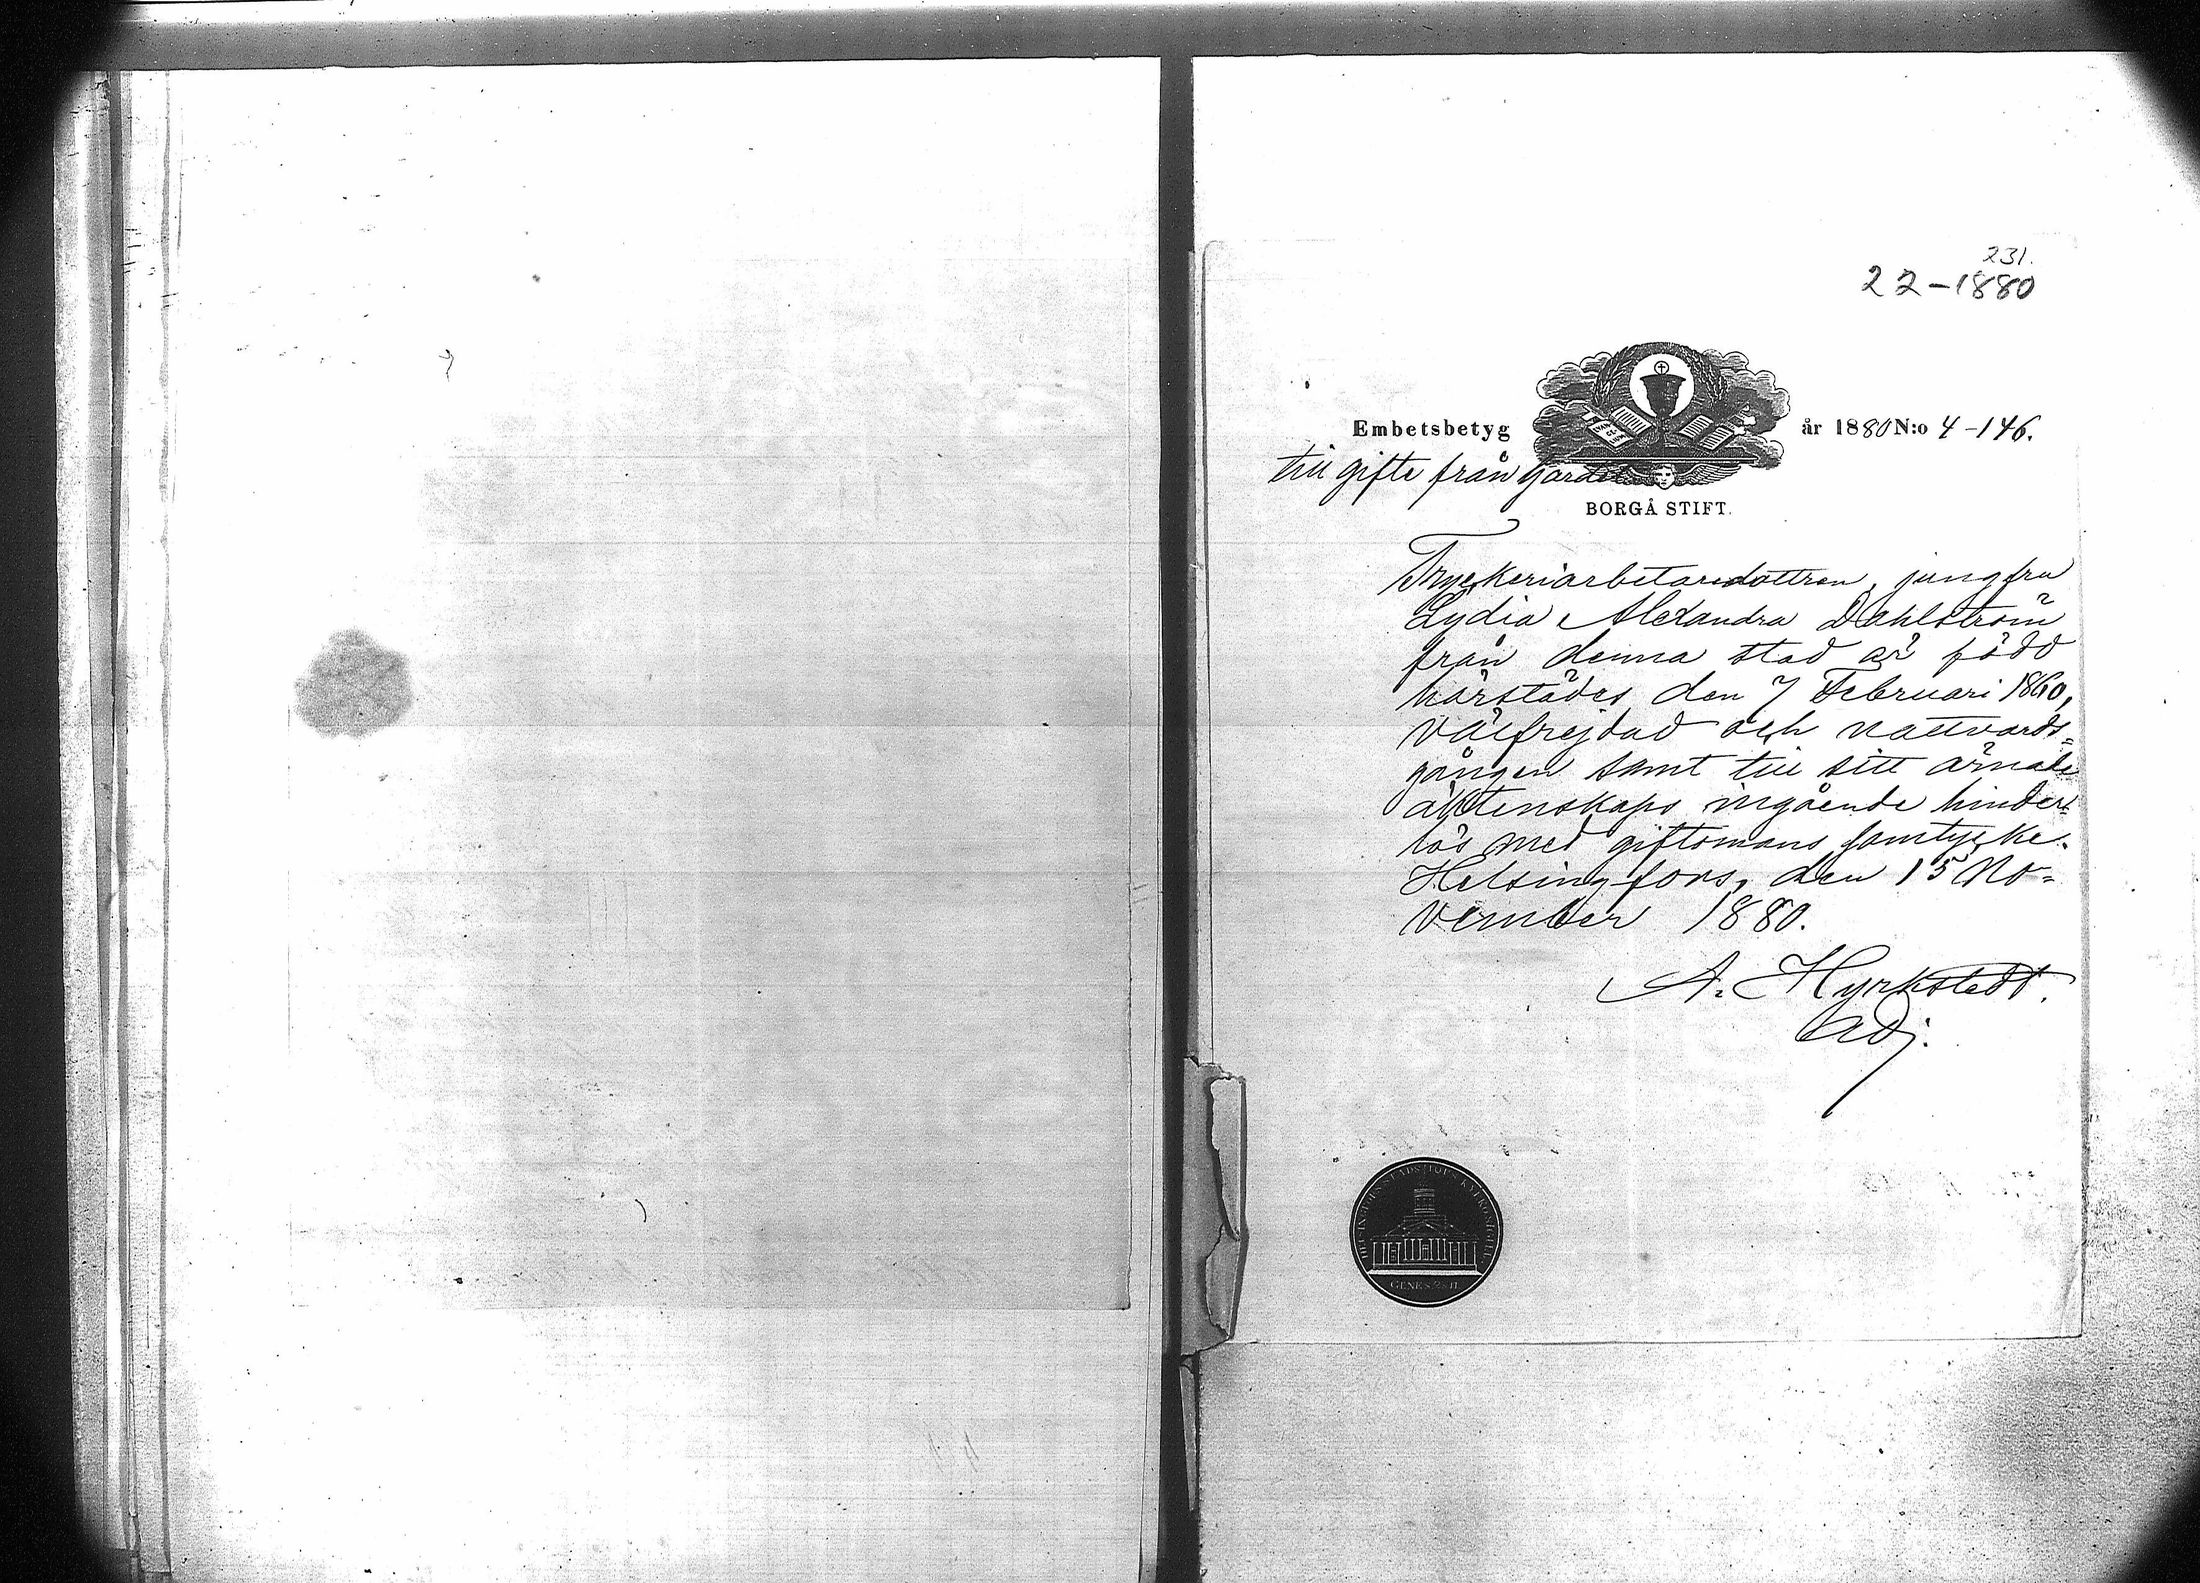 231.
22-1880
Embetsbetyg år 1880 N:o 4-146.
till gifte från Gardet
BORGÅ STIFT.
Tryckeriarbetaredottren, jungfru
Lydia Alexandra Dahlström
från denna stad är född
härstädes den 7 Februari 1860,
välfrejdad och nattvards=
gången samt till sitt ärnade
äktenskaps ingående hinder=
lös med giftomans samtycke.
Helsingfors, den 15 No=
vember 1880.
A. Hyrkstedt.
Adj.